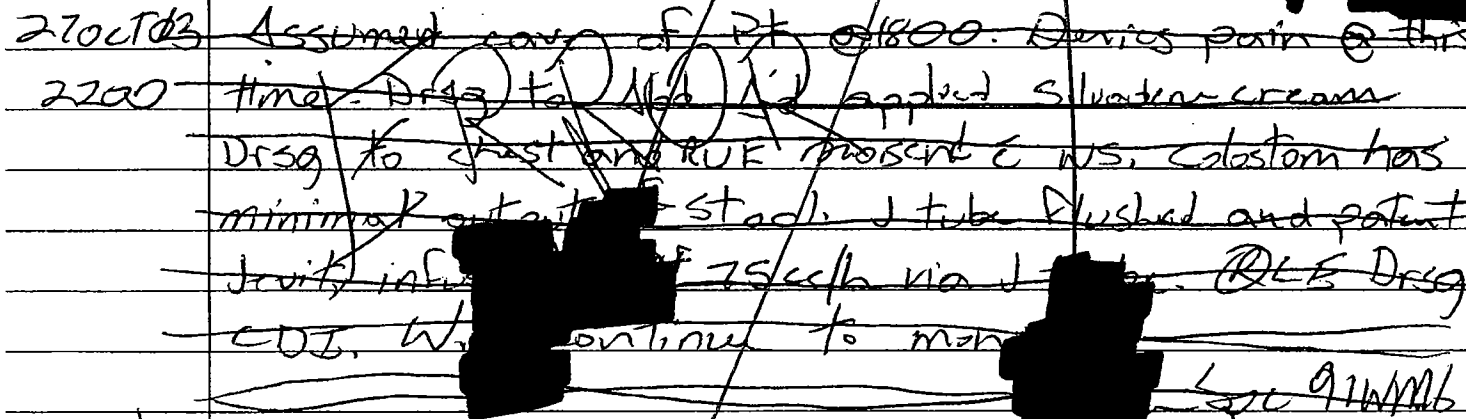 27OCT03 Assumed care of Pt @1800. Denies pain @ this
2200 time. Drsg to Abd applied Silvadene cream
Drsg to chest and RUE moist c NS. Colostom has
minimal output of stool. J tube flushed and patent
Jevity 75cc/h via J RLE Drsg
CDI. continue to
SGC 91WM6